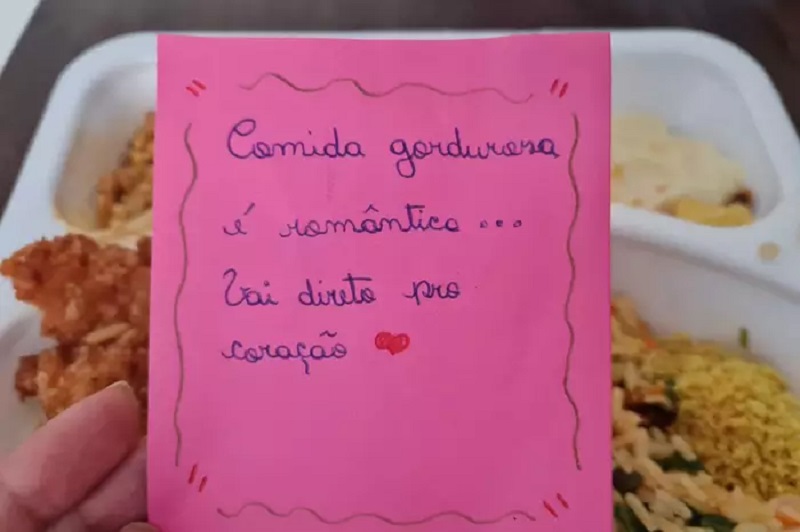 Comida gordurosa
é romântica...
Vai direto pro
coração